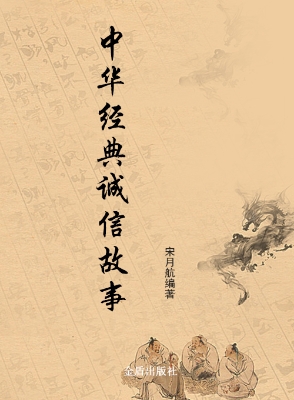 中华经典诚信故事
宋月航编著
金盾出版社